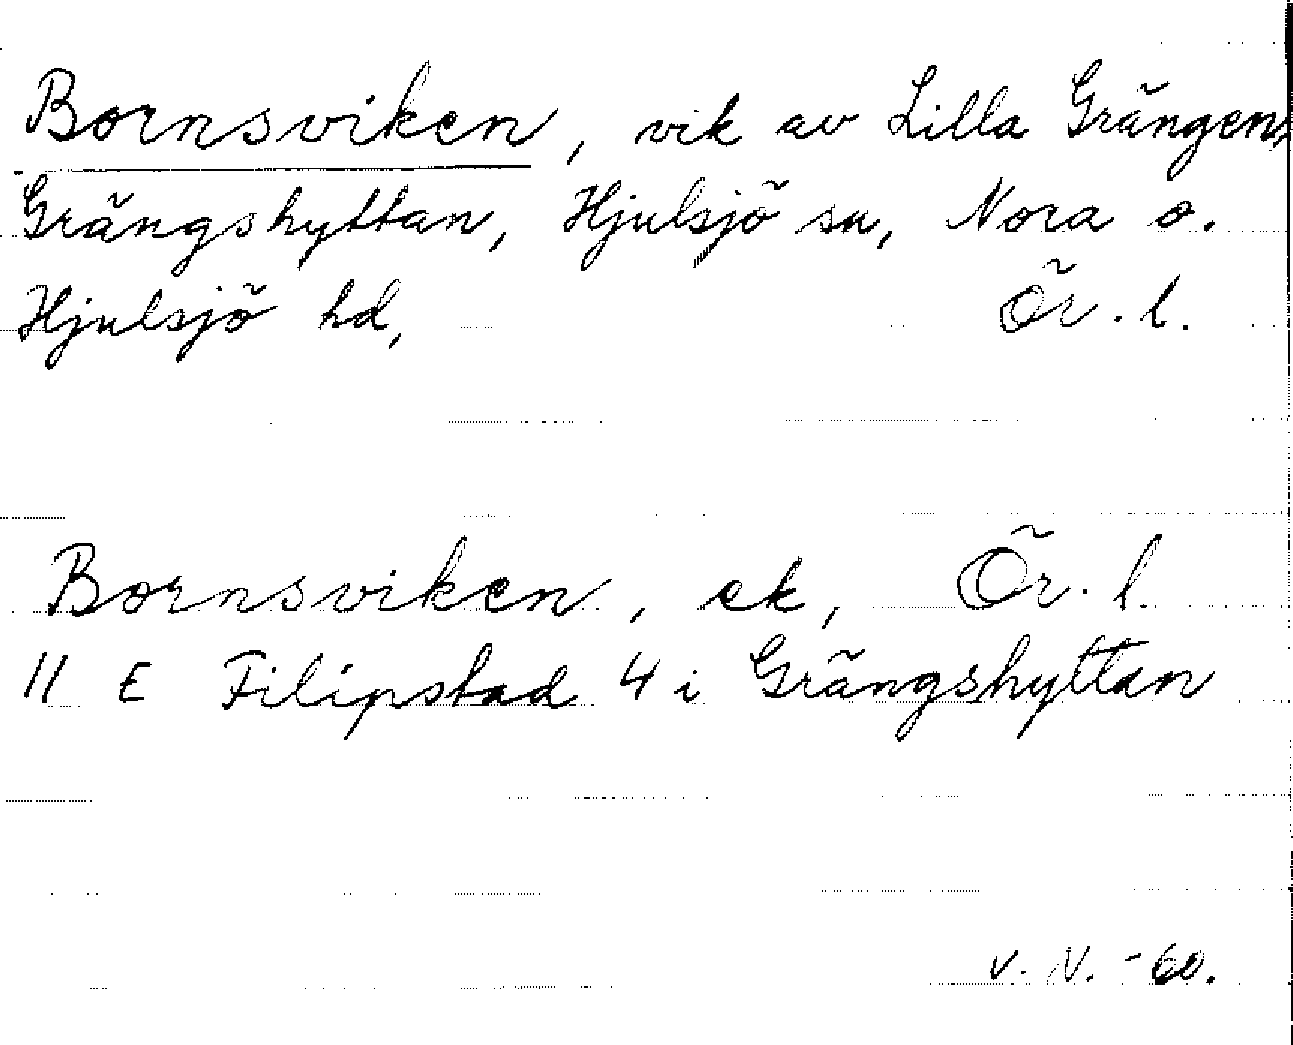 Bornsviken, vik av Lilla Grängen,
Grängshyttan, Hjulsjö sn, Nora o.
Hjulsjö hd, Ör. l.
Bornsviken, ek, Ör. l.
11 E Filipstad 4 i Grängshyttan
V. N. -60.